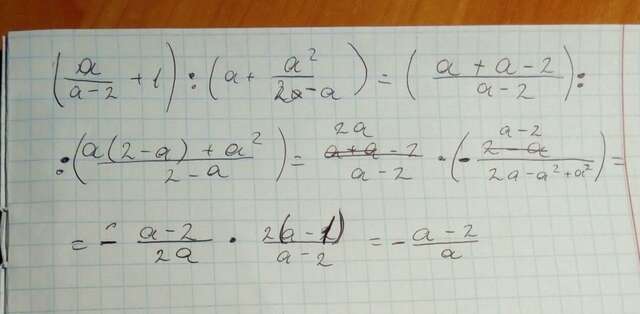 (a/(a-2) + 1) : (a + a²/(2-a)) = ((a + a - 2)/(a-2)) :
: ((a(2-a) + a²)/(2-a)) = (2a - 2)/(a-2) · (-(a-2)/(2a-a²+a²)) =
= - (a-2)/2a · 2(a-1)/(a-2) = - (a-2)/a